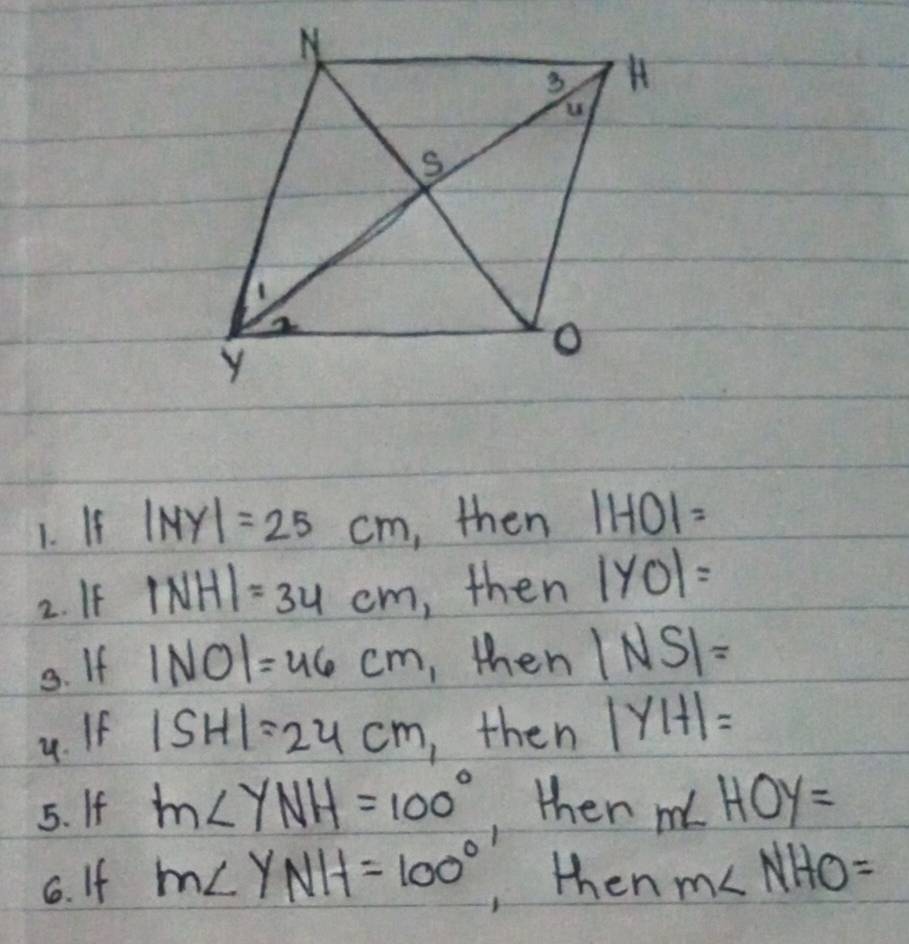 N
H
3
4
S
1
2
Y
O
1. If |NY| = 25 cm, then |HO| =
2. If |NH| = 34 cm, then |YO| =
3. If |NO| = 46 cm, then |NS| =
4. If |SH| = 24 cm, then |YH| =
5. If m∠YNH = 100°, then m∠HOY =
6. If m∠YNH = 100°, then m∠NHO =